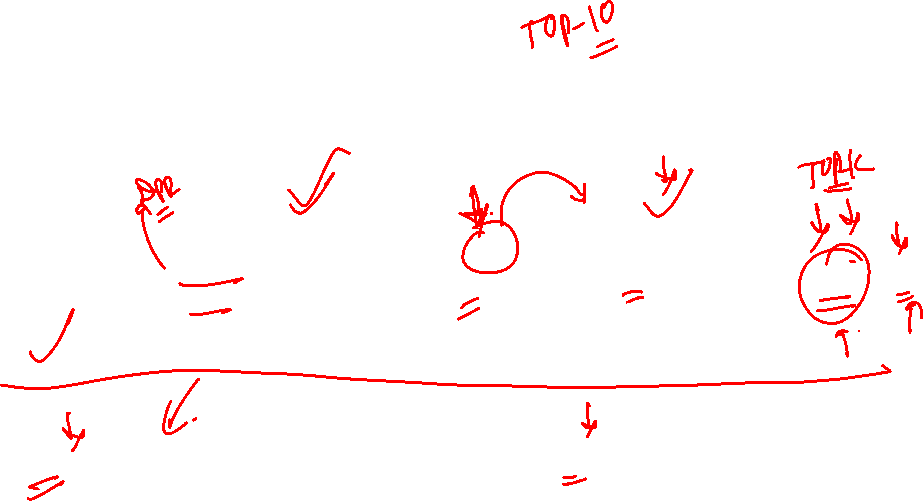 TOP-10
DPR
TOPIC